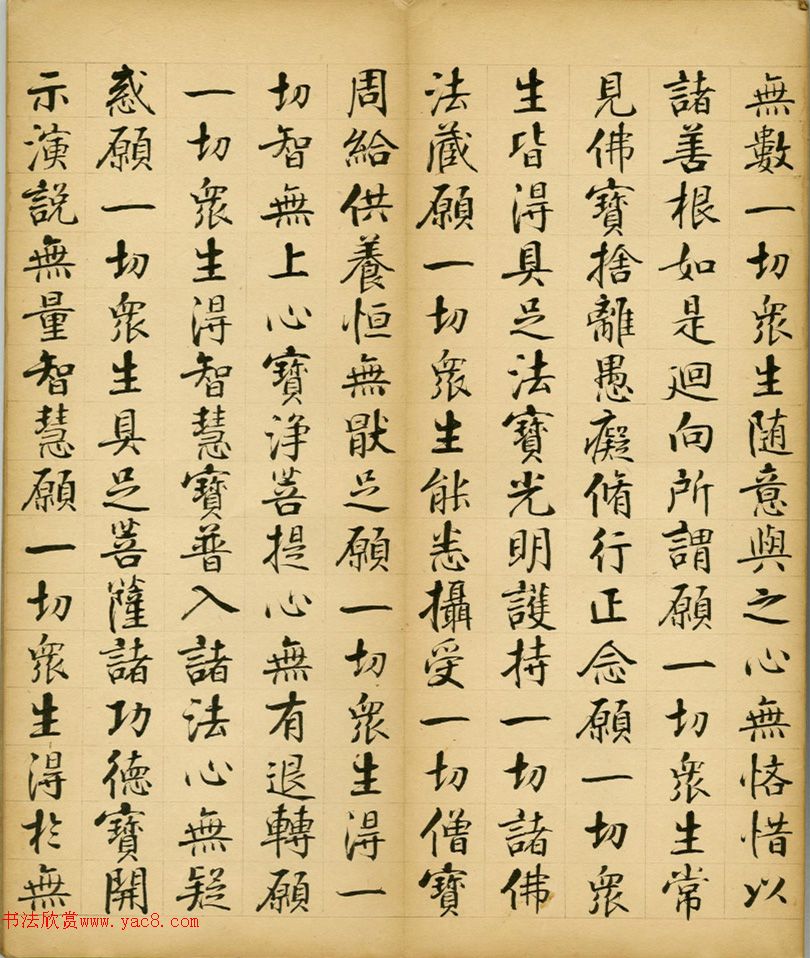 無數一切眾生随意與之心無悋惜以
諸善根如是迴向所謂願一切眾生常
見佛寶捨離愚癡脩行正念願一切眾
生皆得具足法寶光明護持一切諸佛
法藏願一切眾生能悉攝受一切僧寶
周給供養恒無猒足願一切眾生得一
切智無上心寶淨菩提心無有退轉願
一切眾生得智慧寶普入諸法心無疑
惑願一切眾生具足菩薩諸功德寶開
示演説無量智慧願一切眾生得於無
书法欣赏www.yac8.com